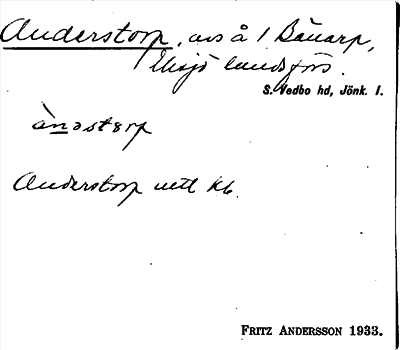 Anderstorp, avs å 1 Bänarp,
Eksjö landsförs.
S. Vedbo hd, Jönk. l.
ànəstərp
Anderstorp uttl kb.
FRITZ ANDERSSON 1933.